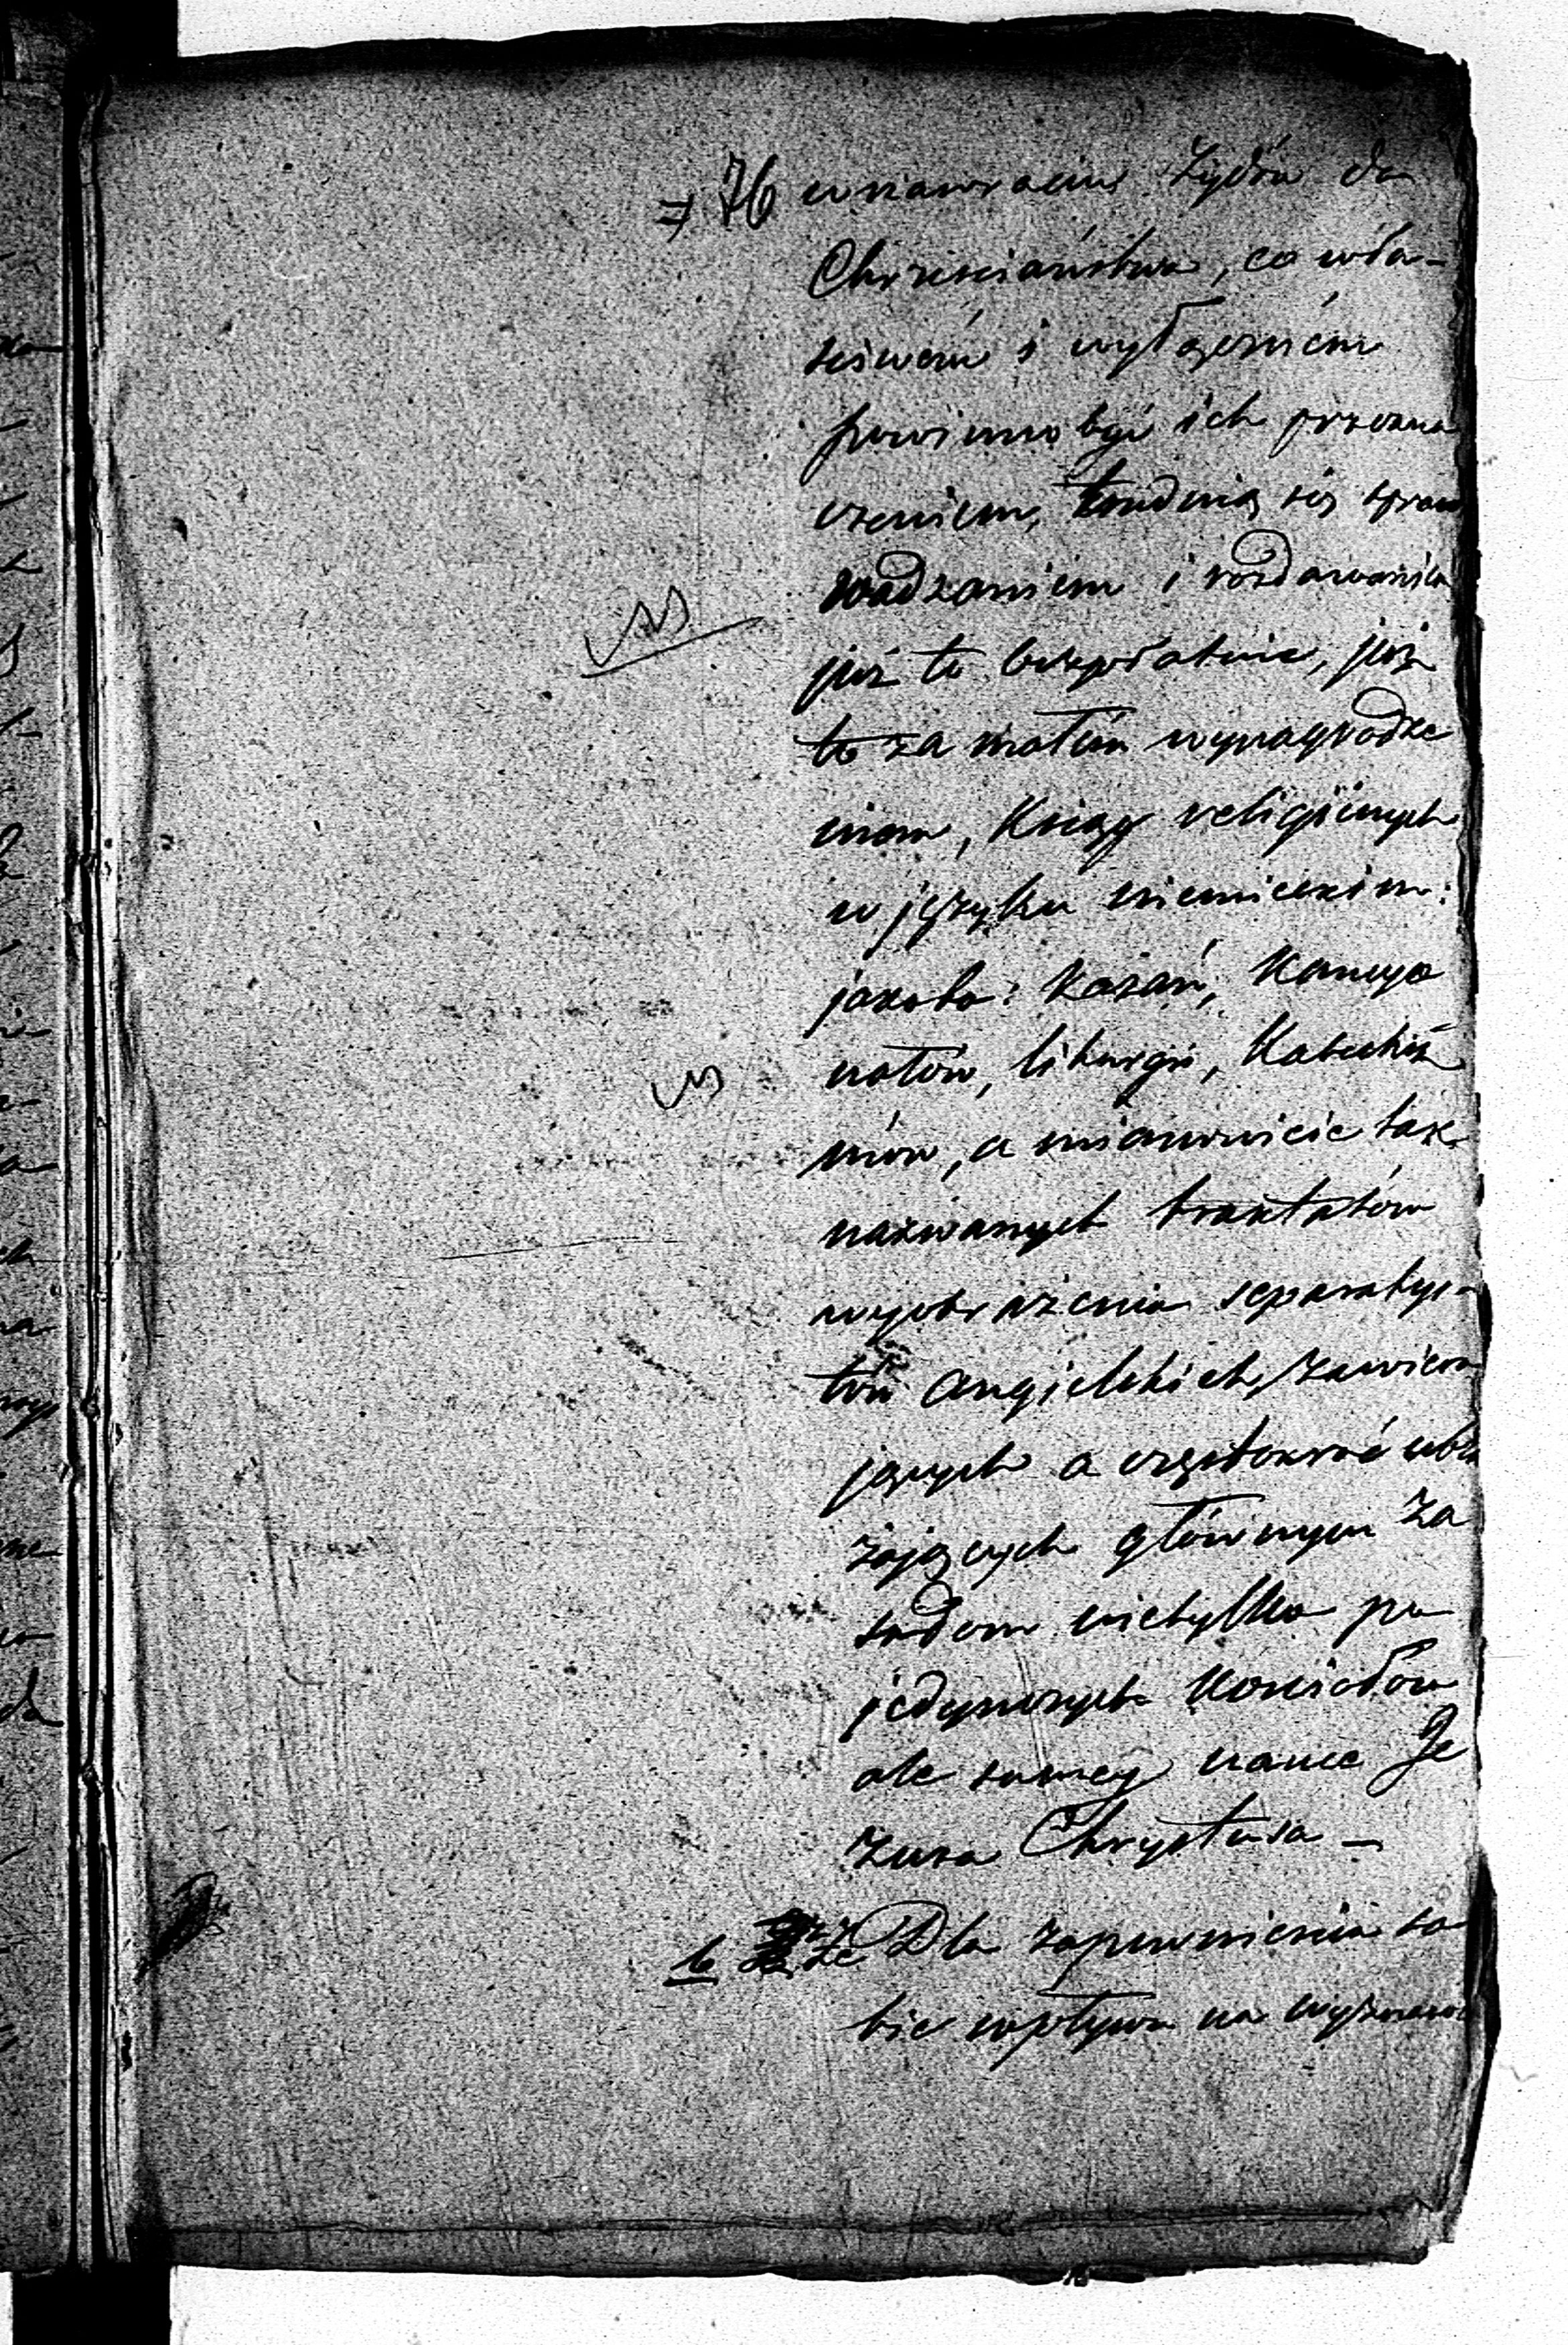 76 w nawracaniu Żydów do
Chrześciaństwa, co wła-
ściwém i wyłączném
powinno być ich przezna
czeniem, trudnią się spro
wadzaniem i rozdawaniem
już to bezpłatnie, już
to za małém wynagrodze
niem, Ksiąg religijnych
w języku niemieckim:
jakoto: Kazań, Kancyo
nałów, liturgii, Katechiz
mów, a mianowicie tak
nazwanych traktatów
wyobrażenia separatys-
tów Angielskich, zawiera
jących a częstokroć ubli
żających głównym za
sadom nietylko po
jedynczych Kościołów
ale samey nauce Je
zusa Chrystusa —
6 że Dla zapewnienia so
bie wpływu na wyznawc